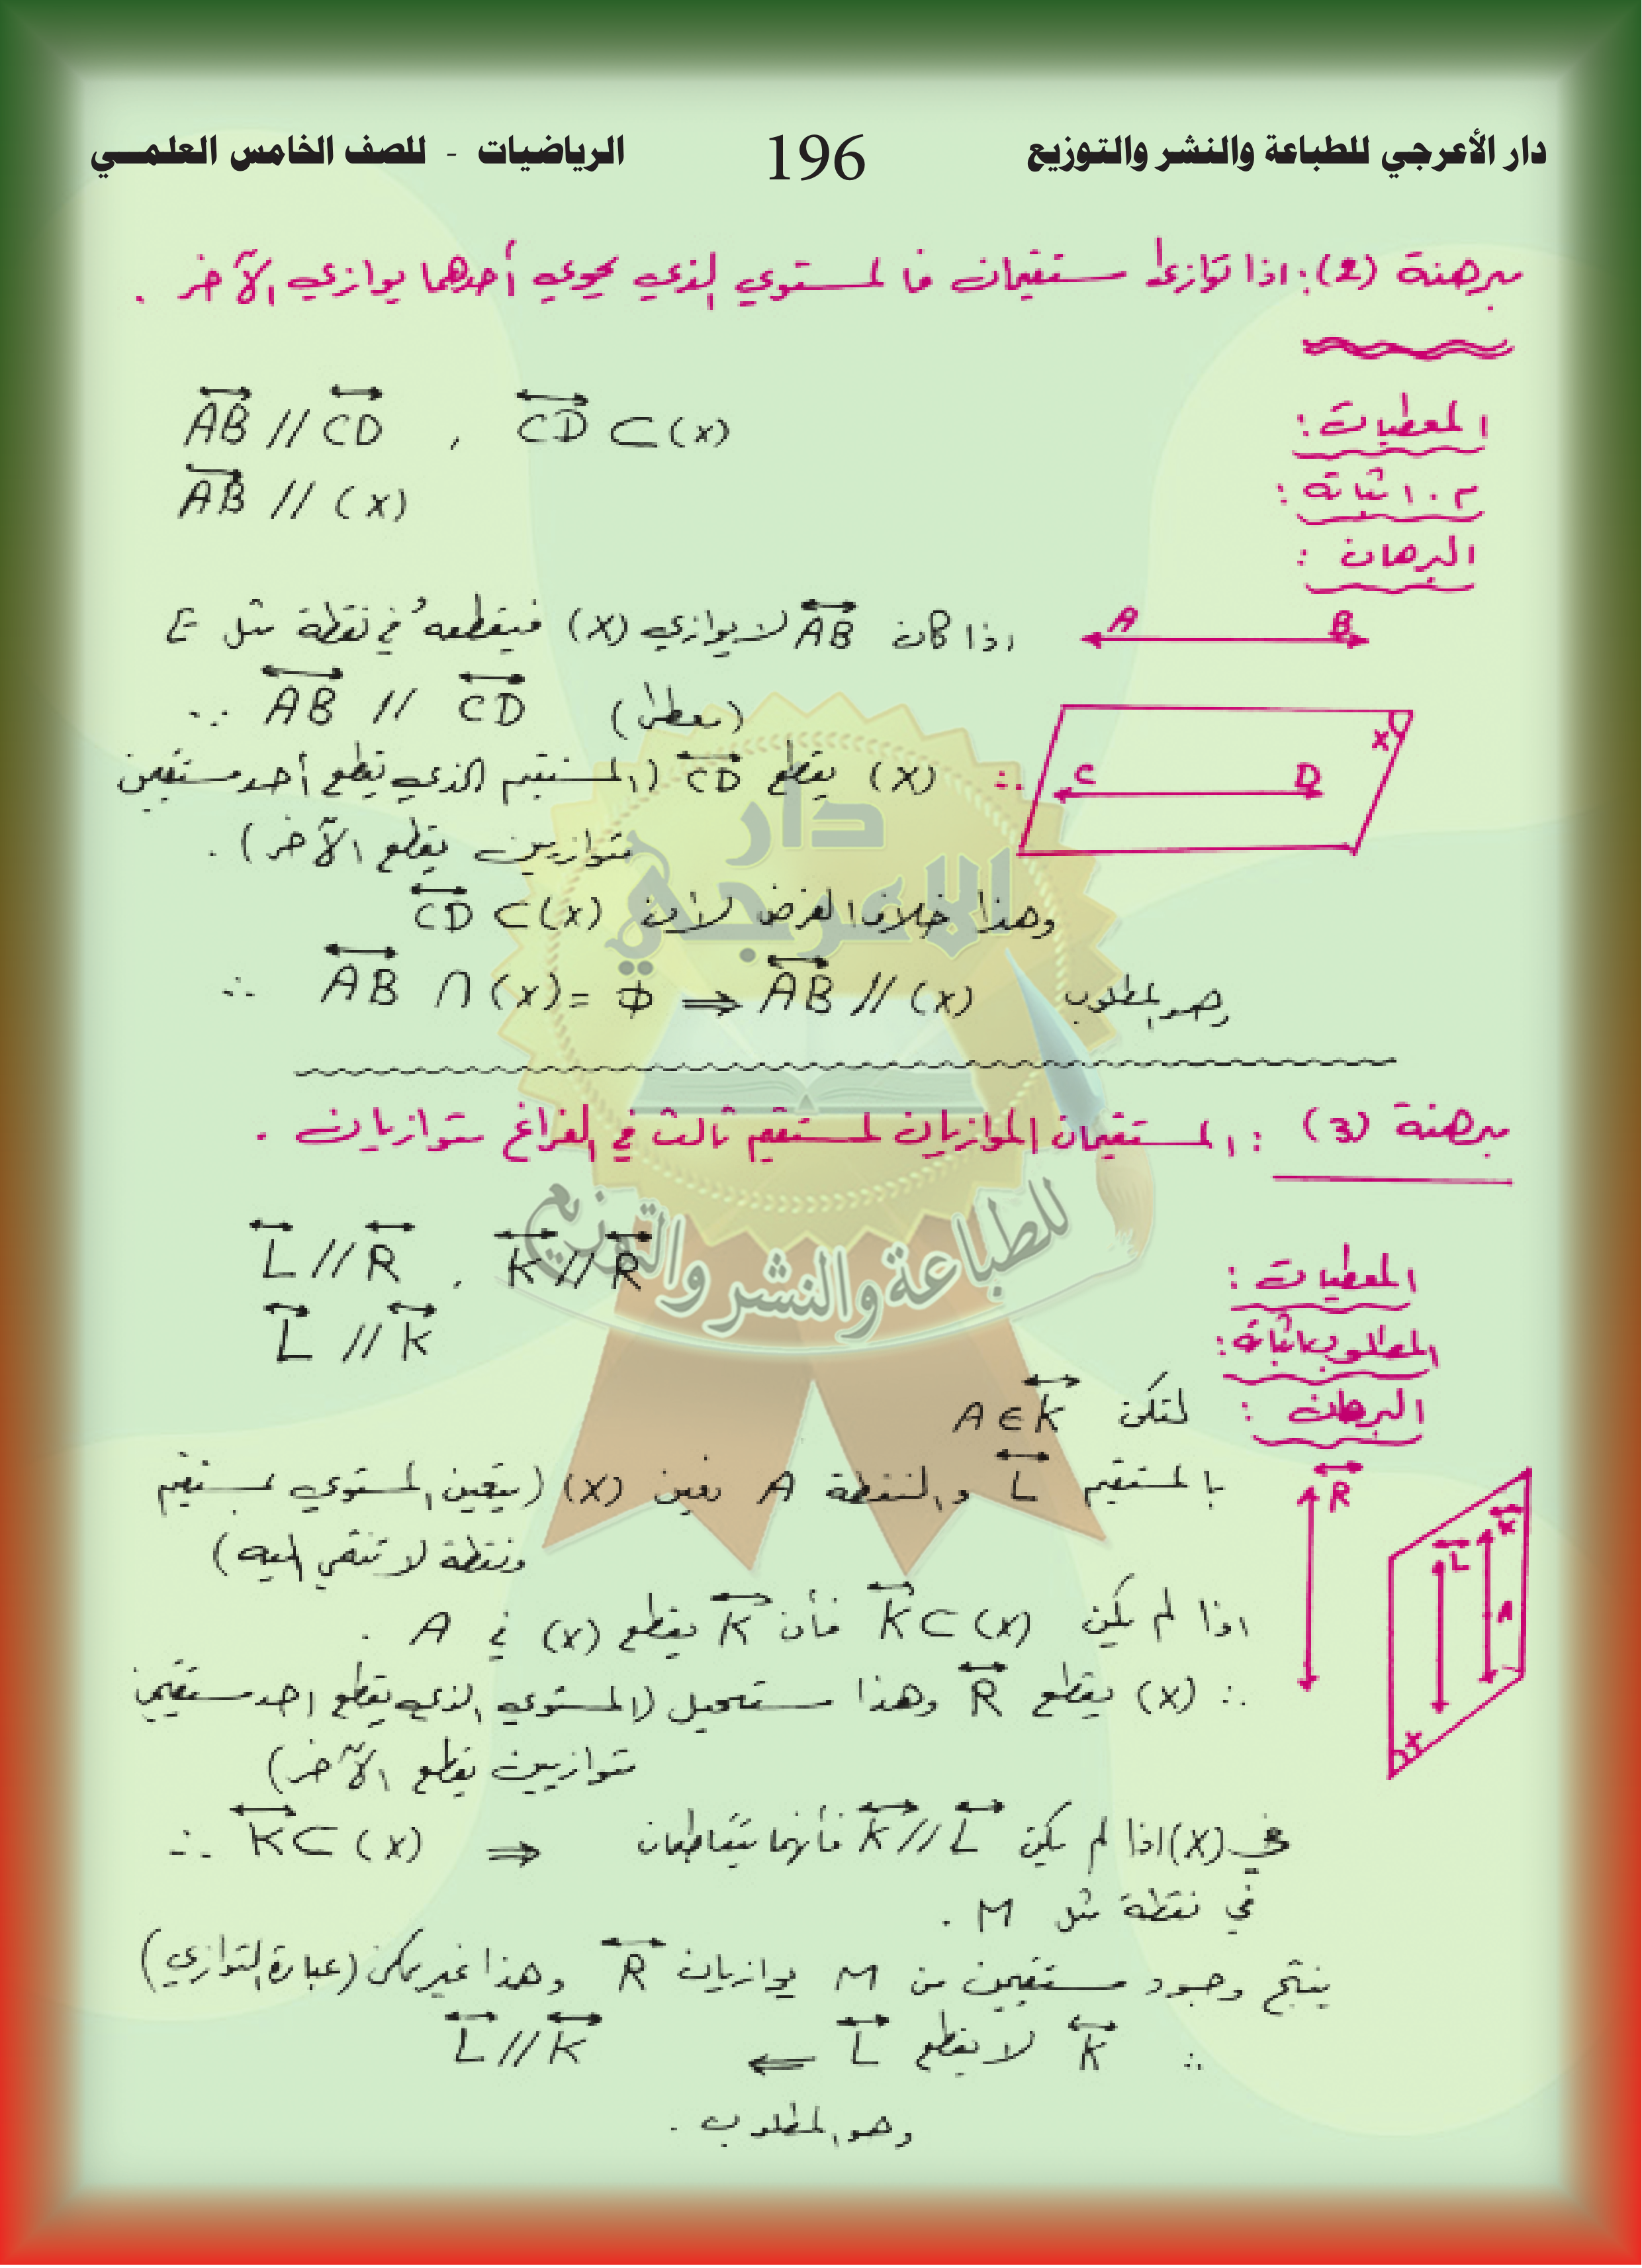 دار الأعرجي للطباعة والنشر والتوزيع 196 الرياضيات - للصف الخامس العلمي
مبرهنة (2): اذا توازى مستقيمان فالمستوي الذي يحوي أحدهما يوازي الآخر .
المعطيات: AB // CD , CD ⊂ (X)
م . اثباته : AB // (X)
البرهان :
اذا كان AB لا يوازي (X) فيقطعه في نقطة مثل E
A B
∵ AB // CD (معطى)
X
∴ (X) يقطع CD (المستقيم الذي يقطع أحد مستقيمين
C D
متوازيين يقطع الآخر) .
وهذا خلاف الفرض لان CD ⊂ (X)
∴ AB ∩ (X) = Φ ⇒ AB // (X) وهو المطلوب
مبرهنة (3) : المستقيمان الموازيان لمستقيم ثالث في الفراغ متوازيان .
المعطيات : L // R , K // R
المطلوب اثباته : L // K
البرهان : لتكن A ∈ K
بالمستقيم L والنقطة A نعين (X) (يتعين المستوي بمستقيم
ونقطة لا تنتمي اليه)
R
L K
A
X
اذا لم يكن K ⊂ (X) فأن K يقطع (X) في A .
∴ (X) يقطع R وهذا مستحيل (المستوي الذي يقطع احد مستقيمين
متوازيين يقطع الآخر)
∴ K ⊂ (X) ⇒ في (X) اذا لم يكن K // L فأنهما يتقاطعان
في نقطة مثل M .
ينتج وجود مستقيمين من M يوازيان R وهذا غير ممكن (عبارة التوازي)
∴ K لا يقطع L ⇐ L // K
وهو المطلوب .
دار
الاعرجي
للطباعة والنشر والتوزيع